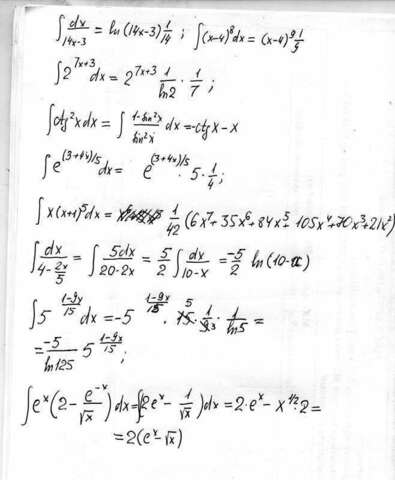 ∫dx/(14x-3) = ln(14x-3) 1/14 ; ∫(x-4)⁸dx = (x-4)⁹ 1/9
∫2^(7x+3) dx = 2^(7x+3) 1/ln2 · 1/7 ;
∫ctg²xdx = ∫ (1-sin²x)/sin²x dx = -ctg x - x
∫e^((3+4x)/5) dx = e^((3+4x)/5) · 5 · 1/4 ;
∫x(x+1)⁵dx = 1/42 (6x⁷+35x⁶+84x⁵+105x⁴+70x³+21x²)
∫ dx/(4-2x/5) = ∫ 5dx/(20-2x) = 5/2 ∫ dx/(10-x) = -5/2 ln(10-x)
∫5^((1-9x)/15) dx = -5^((1-9x)/15) · 15 5 · 1/9 3 · 1/ln5 =
= -5/ln125 5^((1-9x)/15) ;
∫eˣ(2 - e⁻ˣ/√x) dx = ∫(2eˣ - 1/√x)dx = 2·eˣ - x^(1/2)·2 =
= 2(eˣ-√x)